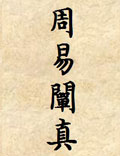 周易闡真